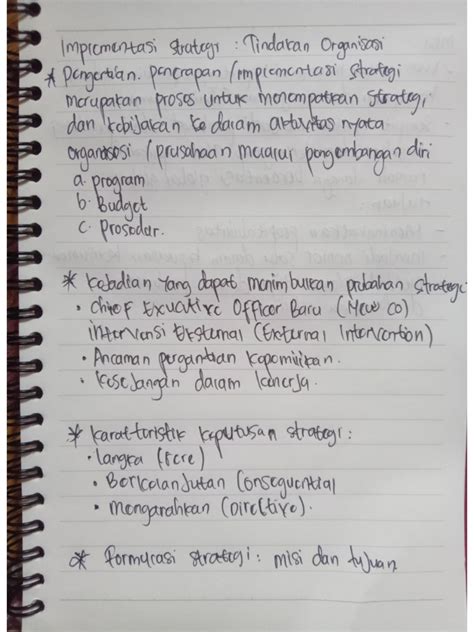 Implementasi strategi : Tindakan Organisasi
* Pengertian. penerapan / implementasi strategi
merupakan proses untuk menempatkan strategi
dan kebijakan ke dalam aktivitas nyata
organisasi / prusahaan melalui pengembangan diri
a. program
b. Budget
c. Prosedur.
* Kebadian yang dapat menimbulkan prubahan strategi
• Chief Exucative Officer Baru (New CO)
intervensi Eksternal (External Intervention)
• Ancaman pergantian kepemilikan.
• Kesejangan dalam kenerja.
* Karakteristik keputusan strategi :
• Langka (Rere)
• Berkelanjutan (Consequential
• Mengarahkan (Directive).
* Formulasi strategi : misi dan tujuan